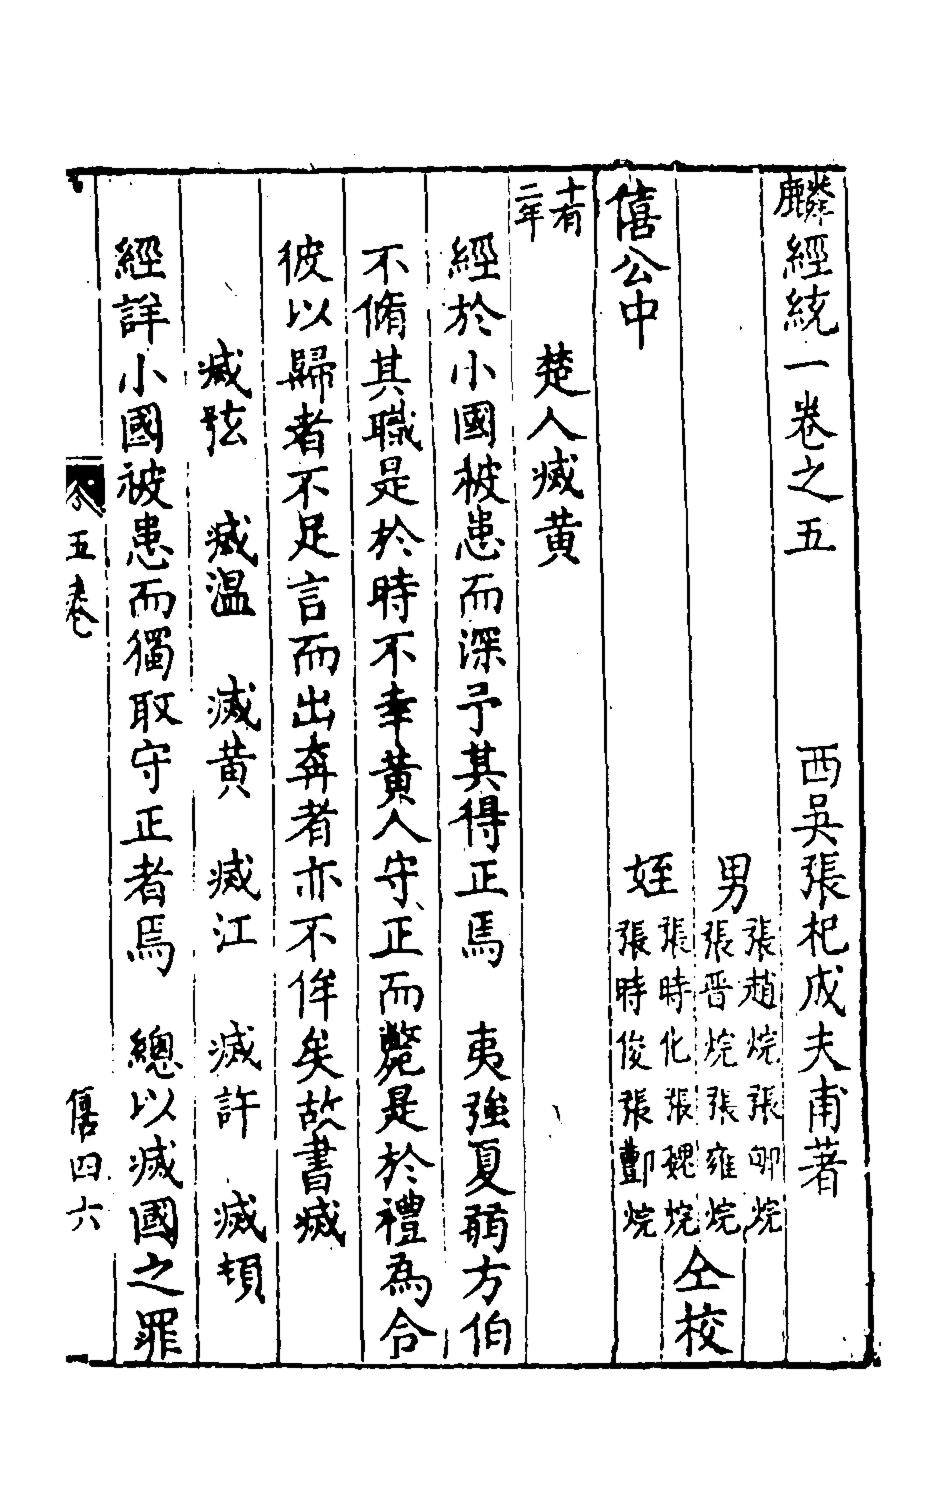 麟經統一卷之五
西吳張杞成夫甫著
男 張趙烷 張䣕烷 張晋烷 張雍烷
姪 張時化 張魏烷 張時俊 張酆烷
仝校
僖公中
十有二年
楚人滅黃
經於小國被患而深予其得正焉 夷強夏弱方伯
不脩其職是於時不幸黃人守正而斃是於禮為合
彼以歸者不足言而出奔者亦不侔矣故書滅
滅弦 滅溫 滅黃 滅江 滅許 滅頓
經詳小國被患而獨取守正者焉 總以滅國之罪
五卷
僖四六